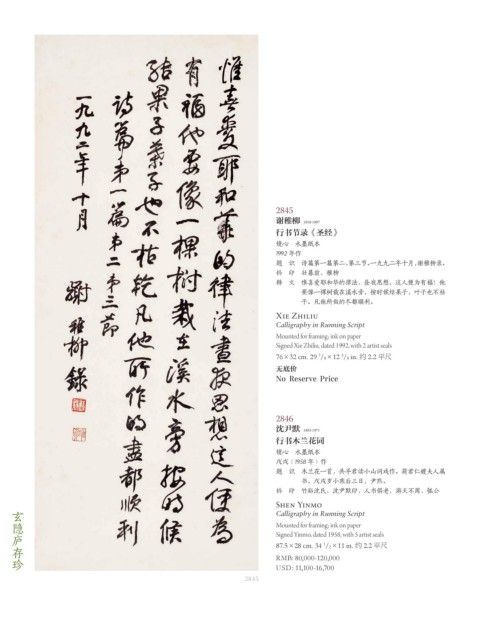 惟喜愛耶和華的律法晝夜思想這人便為
有福他要像一棵樹栽在溪水旁按時候
結果子葉子也不枯乾凡他所作的盡都順利
詩篇第一篇第二第三節
一九九二年十月
謝稚柳錄
玄隐庐存珍
2845
2845
谢稚柳 1910-1997
行书节录《圣经》
镜心 水墨纸本
1992 年作
题 识 诗篇第一篇第二、第三节。一九九二年十月,谢稚柳录。
钤 印 壮暮翁、稚柳
释 文 惟喜爱耶和华的律法,昼夜思想,这人便为有福!他
要像一棵树栽在溪水旁,按时候结果子,叶子也不枯
干。凡他所做的尽都顺利。
XIE ZHILIU
Calligraphy in Running Script
Mounted for framing; ink on paper
Signed Xie Zhiliu, dated 1992, with 2 artist seals
76 × 32 cm. 29 7/8 × 12 5/8 in. 约 2.2 平尺
无底价
No Reserve Price
2846
沈尹默 1883-1971
行书木兰花词
镜心 水墨纸本
戊戌(1958 年)作
题 识 木兰花一首,共平君读小山词戏作。
书。戊戌岁小寒后三日,尹默。
钤 印 竹谿沈氏、沈尹默印、人书俱老、游天不周、匏公
SHEN YINMO
Calligraphy in Running Script
Mounted for framing; ink on paper
Signed Yinmo, dated 1958, with 5 artist seals
87.5 × 28 cm. 34 1/2 × 11 in. 约 2.2 平尺
RMB: 80,000-120,000
USD: 11,100-16,700